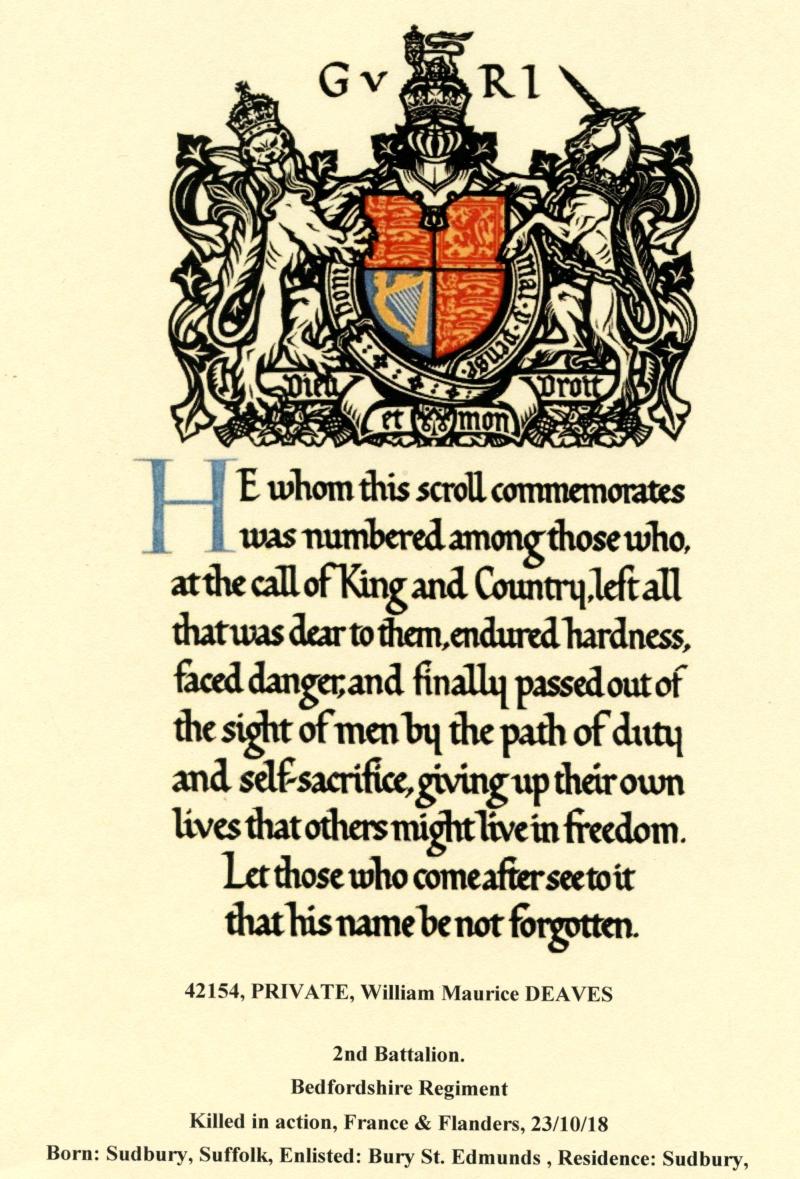 GV RI
hon
mal·y·pense
Dieu
et mon
Droit
HE whom this scroll commemorates
was numbered among those who,
at the call of King and Country, left all
that was dear to them, endured hardness,
faced danger, and finally passed out of
the sight of men by the path of duty
and self-sacrifice, giving up their own
lives that others might live in freedom.
Let those who come after see to it
that his name be not forgotten.
42154, PRIVATE, William Maurice DEAVES
2nd Battalion.
Bedfordshire Regiment
Killed in action, France & Flanders, 23/10/18
Born: Sudbury, Suffolk, Enlisted: Bury St. Edmunds , Residence: Sudbury,